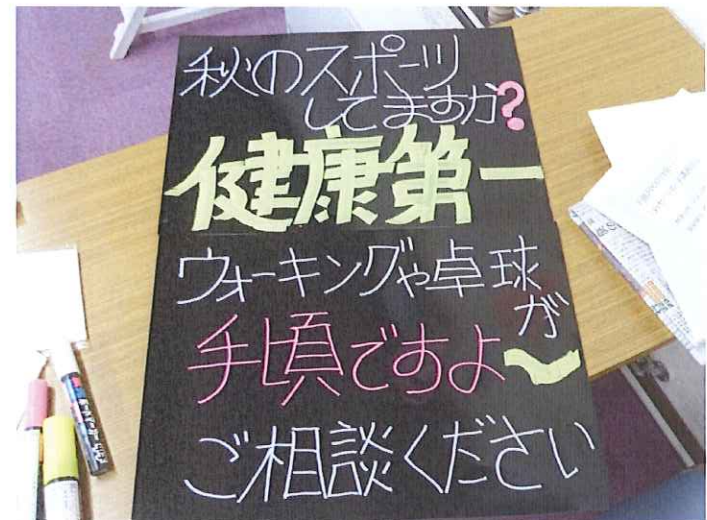 秋のスポーツ
してますか?
健康第一
ウォーキングや卓球
が
手頃ですよ～
ご相談ください